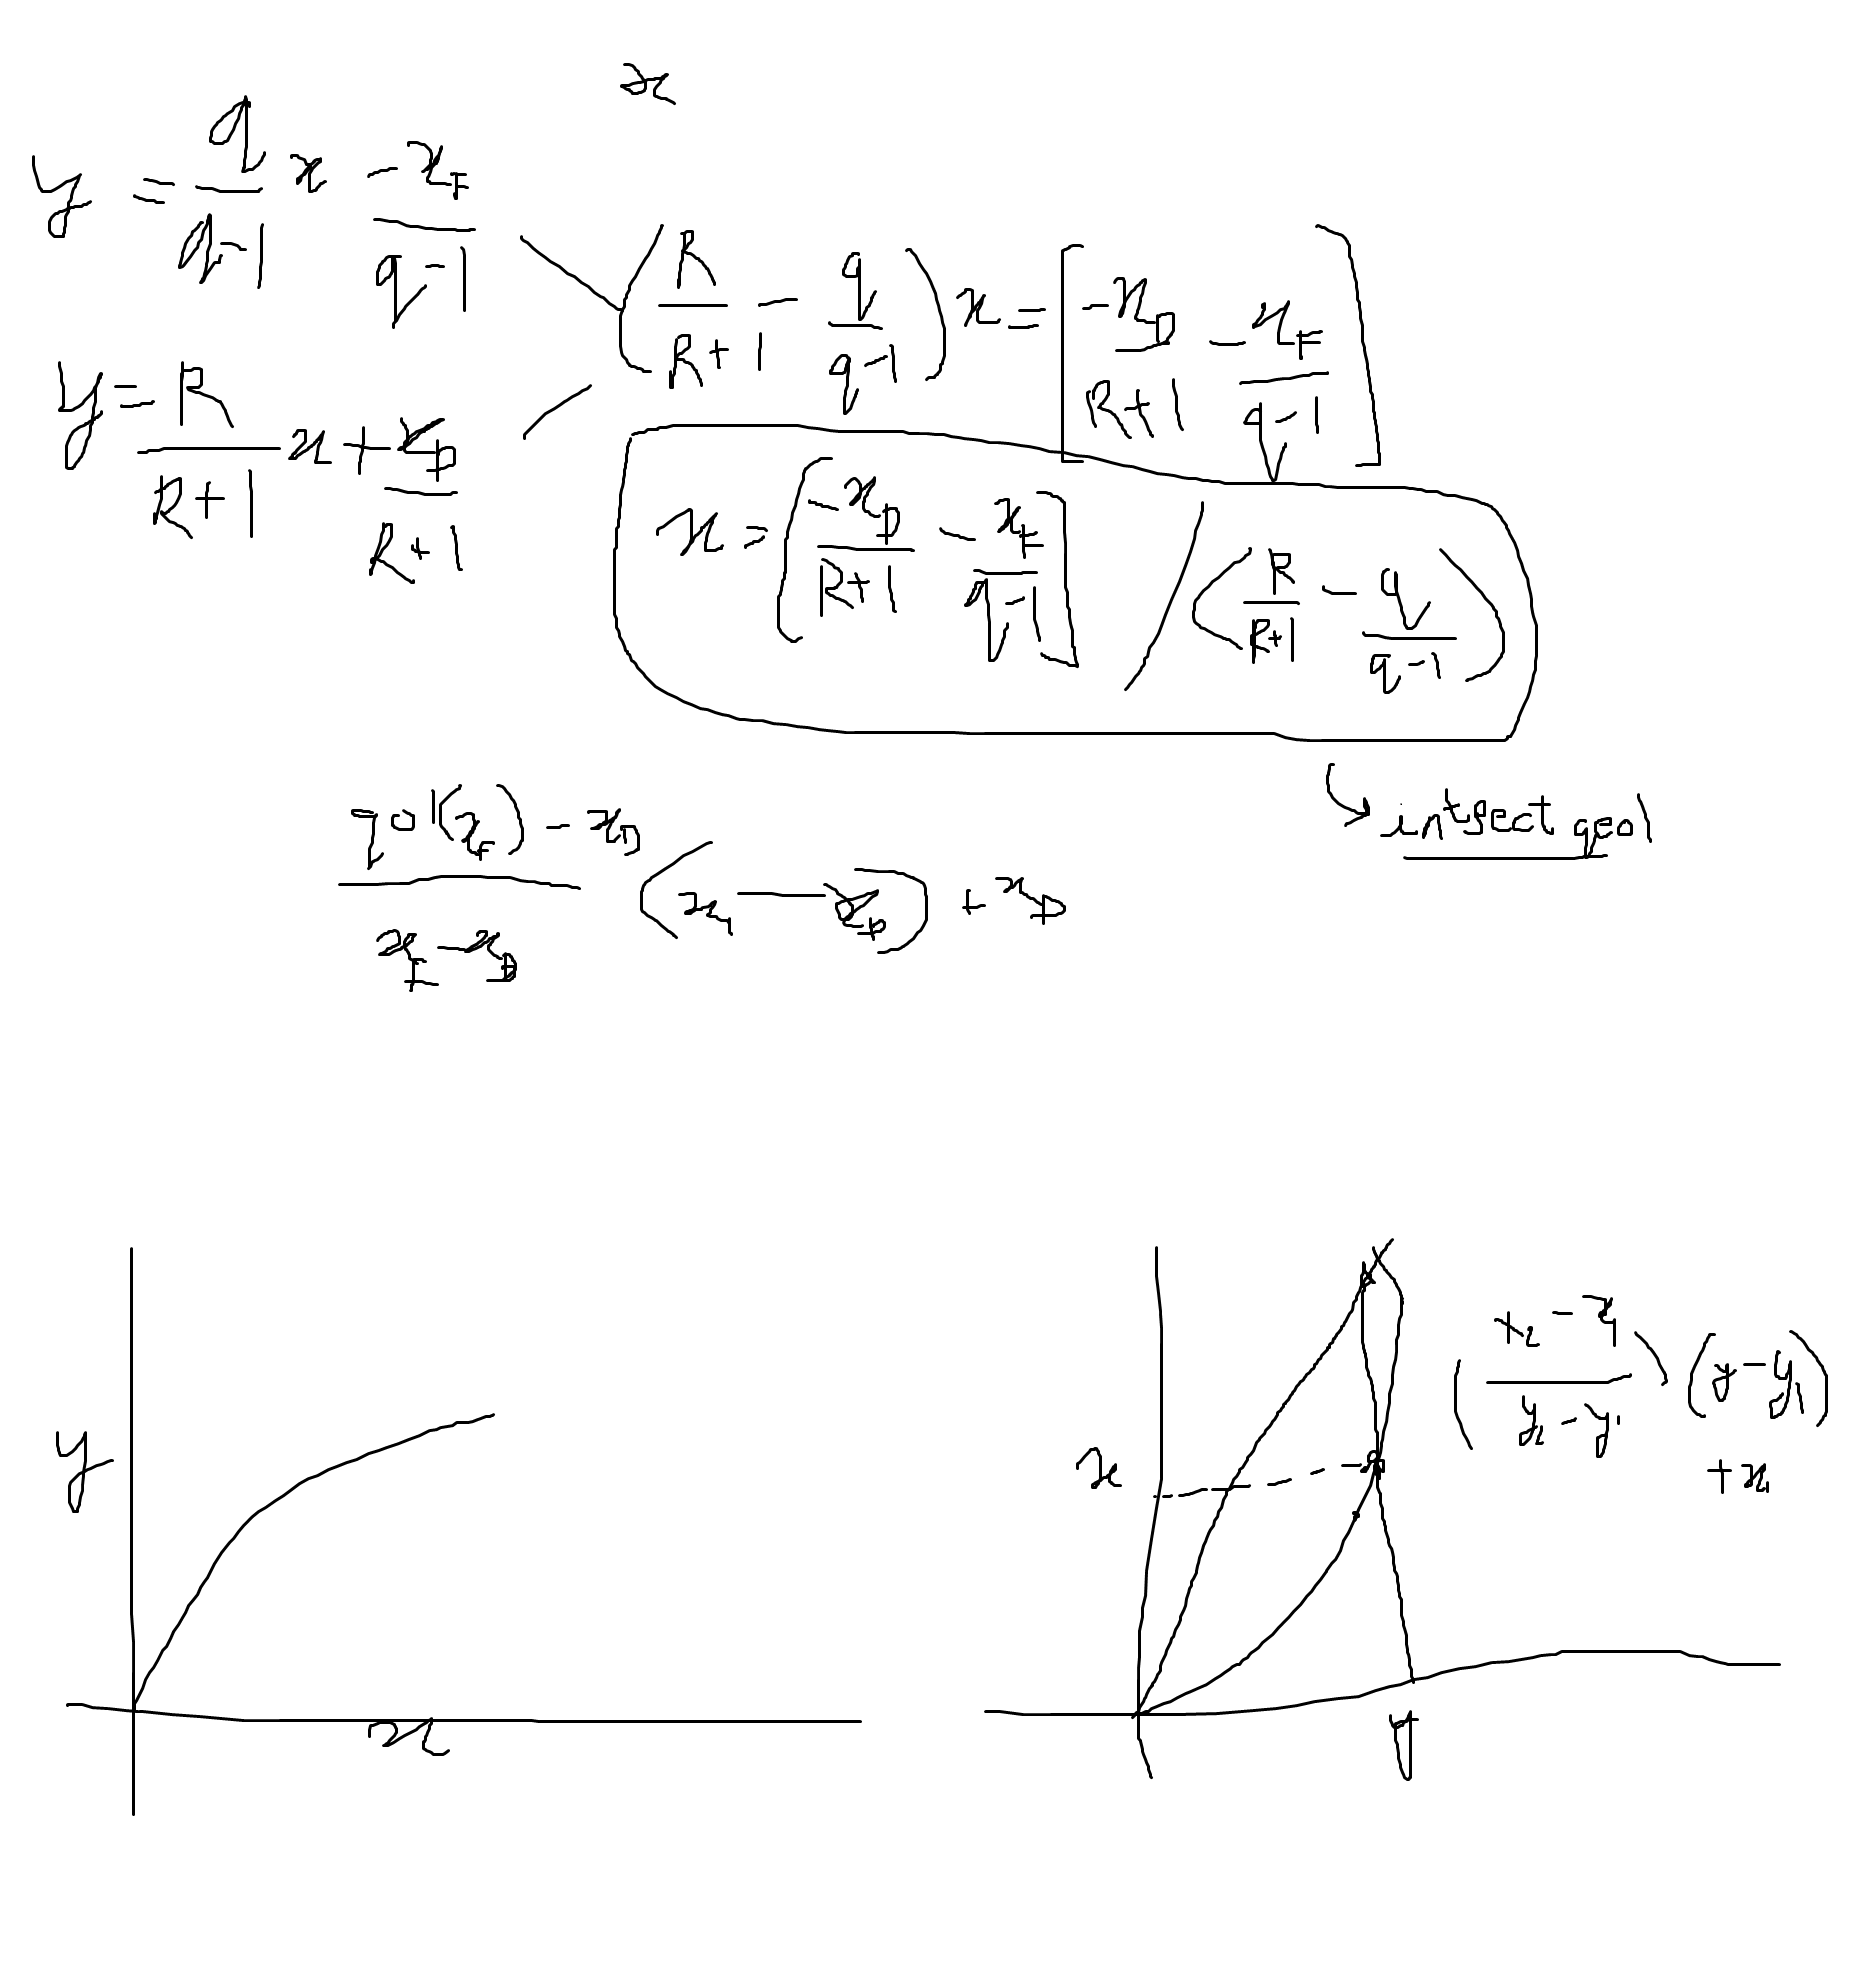 x
y = q/(q-1) x - x_F/(q-1)
(R/(R+1) - q/(q-1)) x = [-x_D/(R+1) - x_F/(q-1)]
y = R/(R+1) x + x_D/(R+1)
x = [-x_D/(R+1) - x_F/(q-1)] / (R/(R+1) - q/(q-1))
intsect qeol
(qol(x_F) - x_D)/(x_F - x_D) (x_1 - x_D) + x_D
y
x
x
y
((x_2 - x_1)/(y_2 - y_1)) (y - y_1)
+ x_1